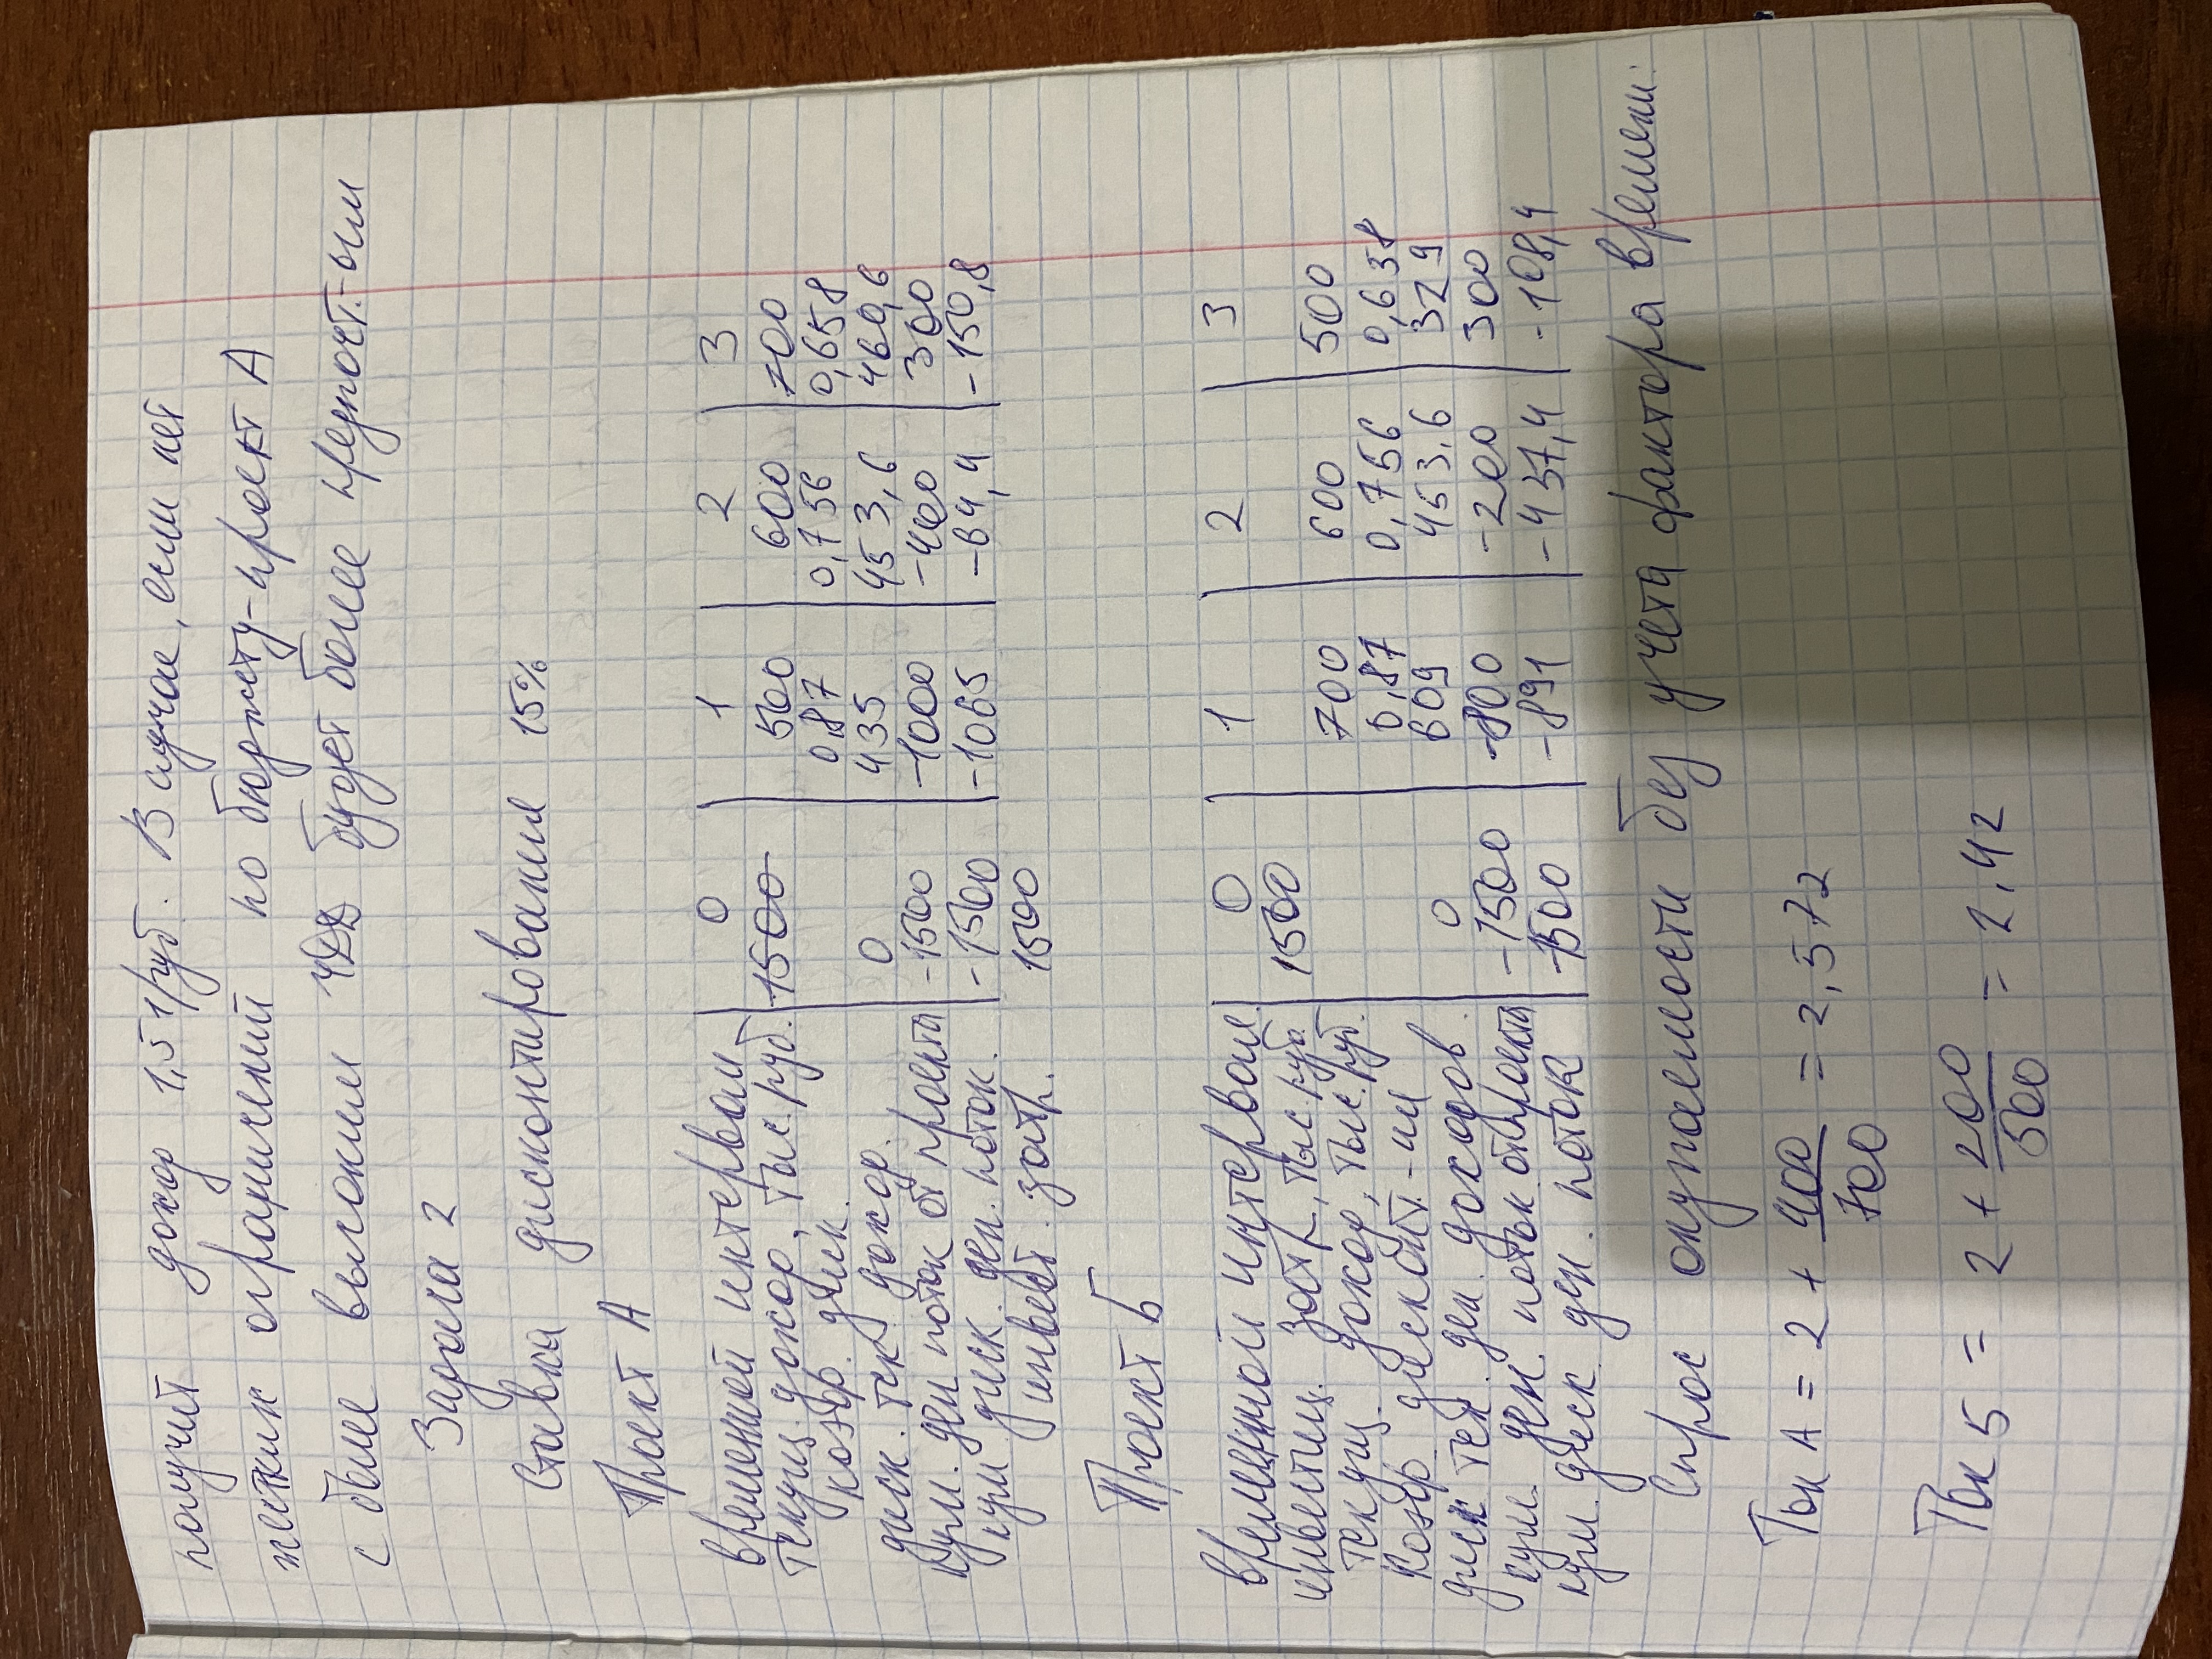 получит доход 1,51 руб. В случае, если нет
жестких ограничений по бюджету - проект А
с более высоким ЧДД будет более предпочт.-ым
Задача 2
Ставка дисконтирования 15%
Проект А
временной интервал 0 1 2 3
текущ. доход, тыс. руб. 1500 500 600 700
коэф. диск. 0,87 0,756 0,658
диск. тек. доход. 0 435 453,6 460,6
кум. ден поток от проекта -1500 -1000 -400 300
кум диск. ден. поток. -1500 -1065 -64,4 -150,8
инвест. затр. 1500
Проект Б
временной интервал. 0 1 2 3
инвестиц. затр, тыс. руб. 1500
текущ. доход, тыс. руб. 700 600 500
Коэф дисконт.-ия 0,87 0,756 0,658
диск тек. ден. доходов. 0 609 453,6 329
кум. ден. поток от проекта -1500 -800 -200 300
кум. диск. ден. поток -1500 -891 -437,4 -108,4
Спрос окупаемости без учета фактора времени:
Ток А = 2 + 400/700 = 2,572
Ток Б = 2 + 200/500 = 2,42